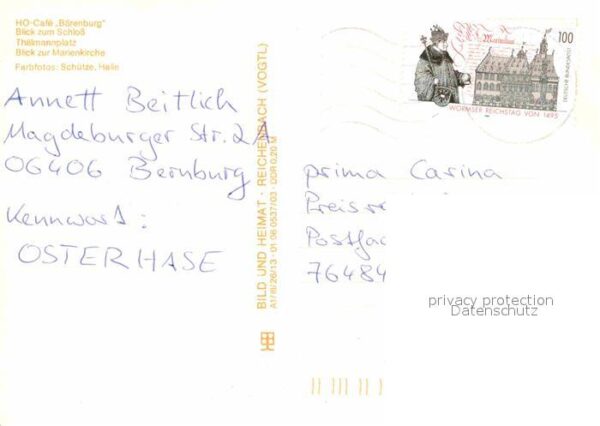 HO-Café „Bärenburg"
Blick zum Schloß
Thälmannplatz
Blick zur Marienkirche
Farbfotos: Schütze, Halin
Annett Beitlich
Magdeburger Str. 2A
06406 Bernburg
Kennwort:
OSTERHASE
BILD UND HEIMAT · REICHENBACH (VOGTL)
A1/III/26/13 · 01 06 0537/03 · DDR 0,20 M
Maximilian
100
DEUTSCHE BUNDESPOST
WORMSER REICHSTAG VON 1495
prima Carina
Preisr
Postfac
76484
privacy protection
Datenschutz